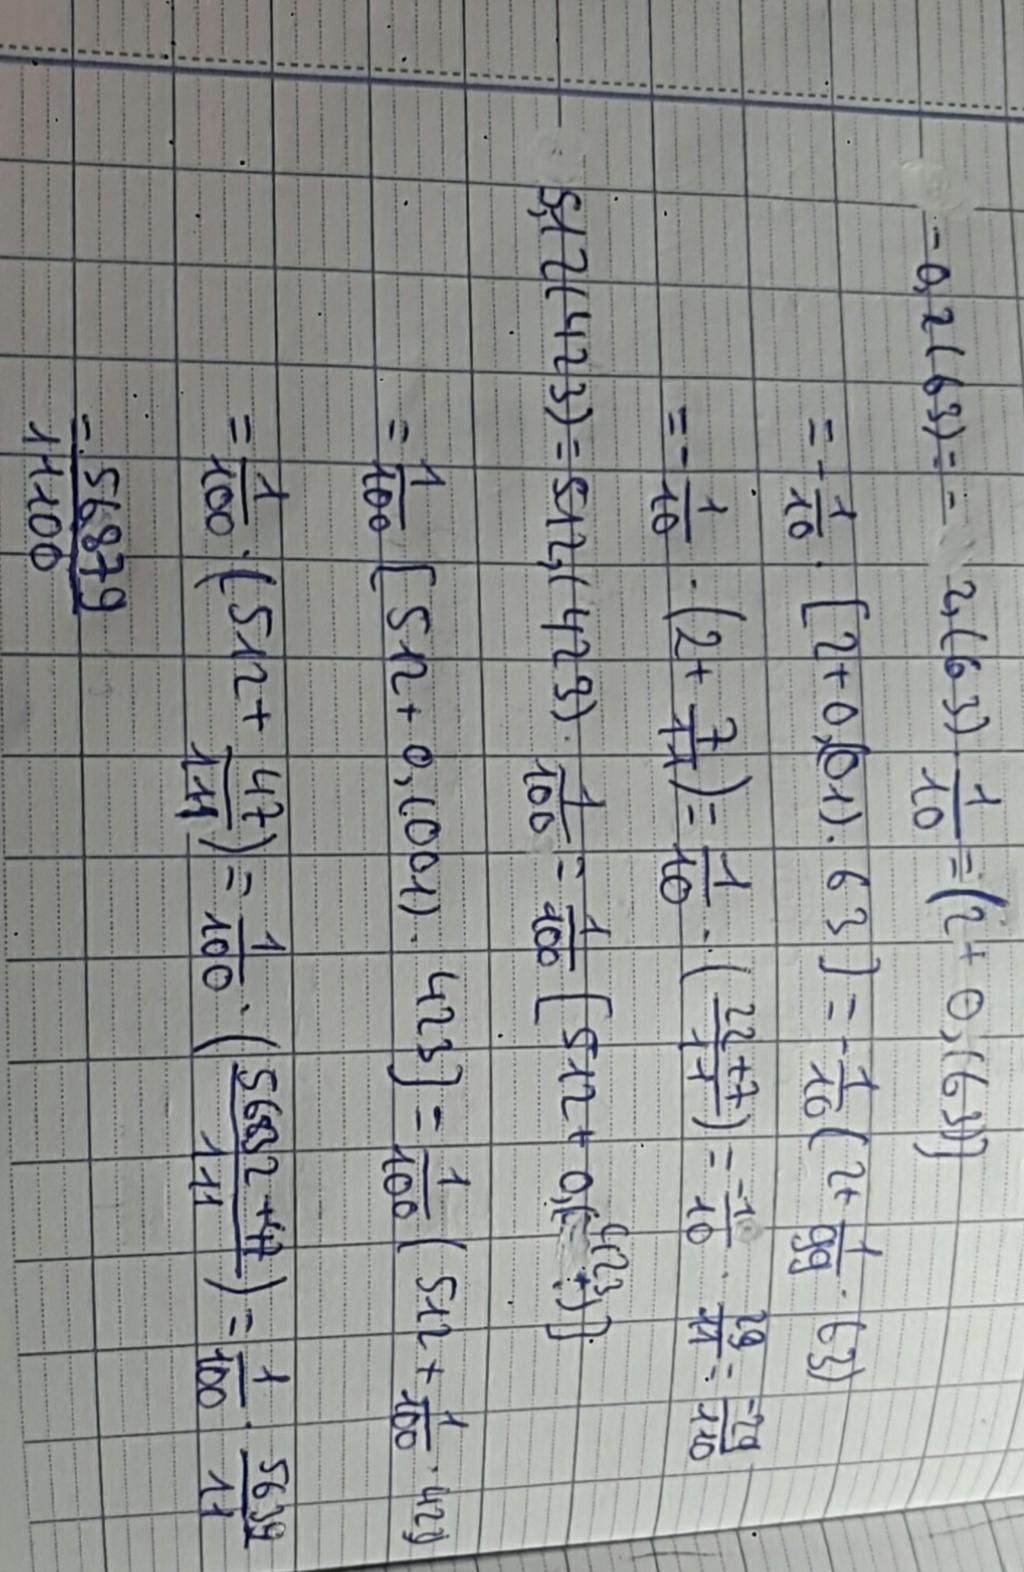 -0,2(63) = - 2,(63) · 1/10 = (2 + 0,(63))
= -1/10 · [2 + 0,(01) · 63] = -1/10 (2 + 1/99 · 63)
= -1/10 · (2 + 7/11) = 1/10 · (22+7/11) = -1/10 · 29/11 = -29/110
5,12(423) = 512,(423) · 1/100 = 1/100 [512 + 0,(423)]
= 1/100 [512 + 0,(001) · 423] = 1/100 (512 + 1/100 · 423)
= 1/100 · (512 + 47/111) = 1/100 · (56832 + 47/111) = 1/100 ·
= 56879/11100